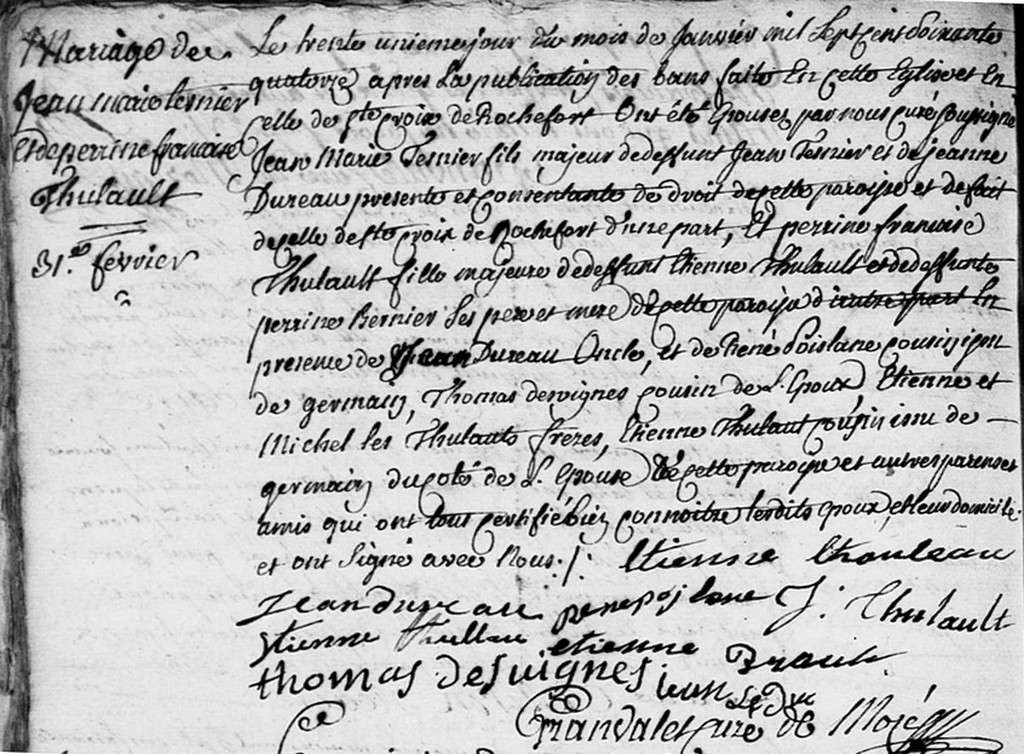 Mariage de
Jean marie Tesnier
Et de perrine francoise
Thulault
31.e février
Le trente unieme jour du mois de Janvier mil Sept cent Soixante
quatorze apres La publication des bans faite En cette Eglise et En
celle de ste Croix de Rochefort Ont été Epousés par nous curé soussigné
Jean Marie Tesnier fils majeur de deffunt Jean Tesnier et de jeanne
Dureau presente et consentante de droit de cette paroisse et de fait
de celle de ste croix de Rochefort d'une part, Et perrine francoise
Thulault fille majeure de deffunt Etienne Thulault et de deffunte
perrine Bernier Ses pere et mere de cette paroisse d'autre part En
presence de Jean Dureau Oncle, et de René Poislane cousin issu
de germain, Thomas desvignes cousin de L. Epoux, Etienne et
Michel les Thulauts freres, Etienne Thulaut cousin issu de
germain du coté de L. Epouse de cette paroisse et autres parens et
amis qui ont tous certifié bien connoitre lesdits epoux, et leur domicile
et ont Signé avec Nous ./. Etienne thouleau
Jean dureau rene poislane J. Thulault
Etienne thullau etienne
thomas desvignes jean
Grandvalet curé de Mozé